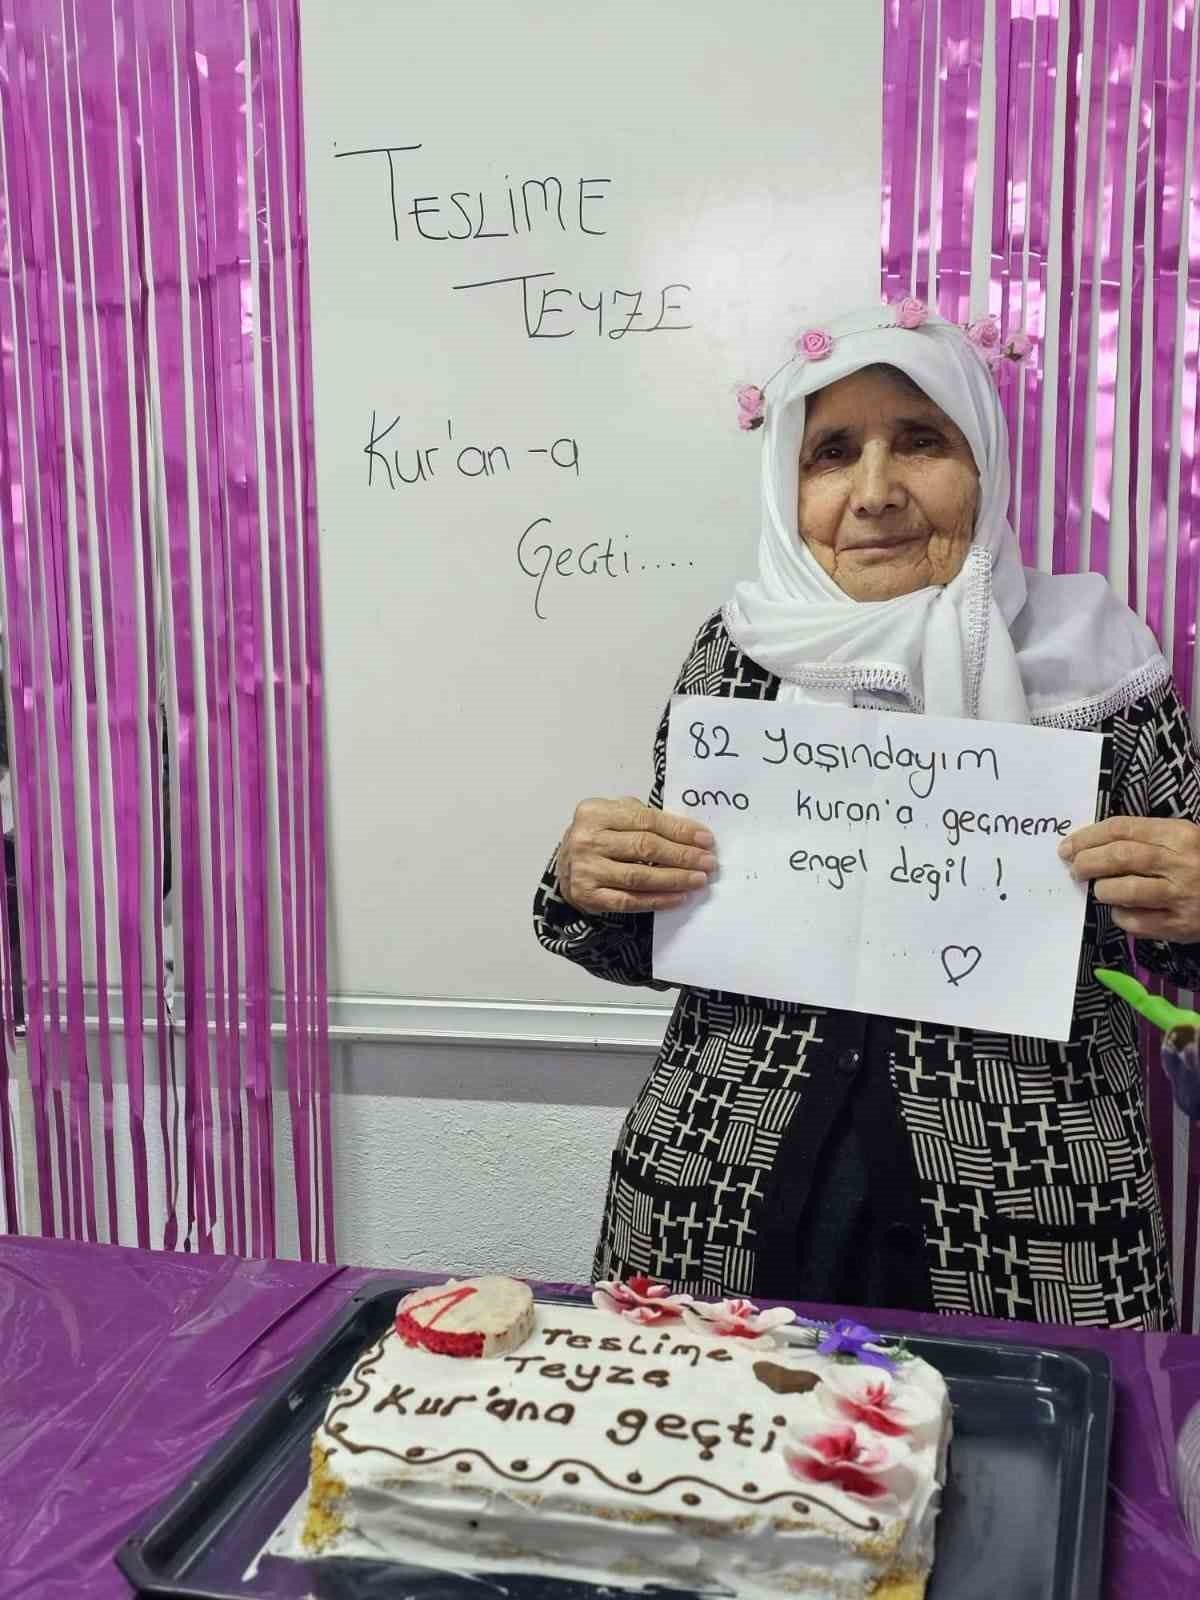 TESLİME
TEYZE
Kur'an-a
Geçti....
82 yaşındayım
ama kuran'a geçmeme
engel değil !
Teslime
Teyze
Kur'ana geçti